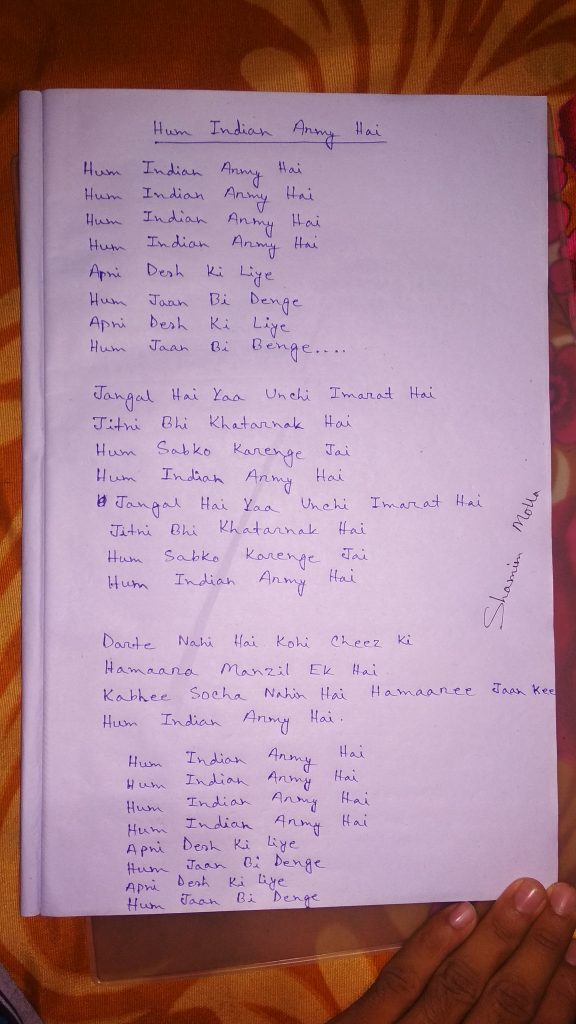 Hum Indian Army Hai
Hum Indian Army Hai
Hum Indian Army Hai
Hum Indian Army Hai
Hum Indian Army Hai
Apni Desh Ki Liye
Hum Jaan Bi Denge
Apni Desh Ki Liye
Hum Jaan Bi Benge....
Jangal Hai Yaa Unchi Imarat Hai
Jitni Bhi Khatarnak Hai
Hum Sabko Karenge Jai
Hum Indian Army Hai
Jangal Hai Yaa Unchi Imarat Hai
Jitni Bhi Khatarnak Hai
Hum Sabko Karenge Jai
Hum Indian Army Hai
Shamim Molla
Darte Nahi Hai Kohi Cheez Ki
Hamaara Manzil Ek Hai
Kabhee Socha Nahin Hai Hamaaree Jaan Kee
Hum Indian Army Hai.
Hum Indian Army Hai
Hum Indian Army Hai
Hum Indian Army Hai
Hum Indian Army Hai
Apni Desh Ki Liye
Hum Jaan Bi Denge
Apni Desh Ki Liye
Hum Jaan Bi Denge